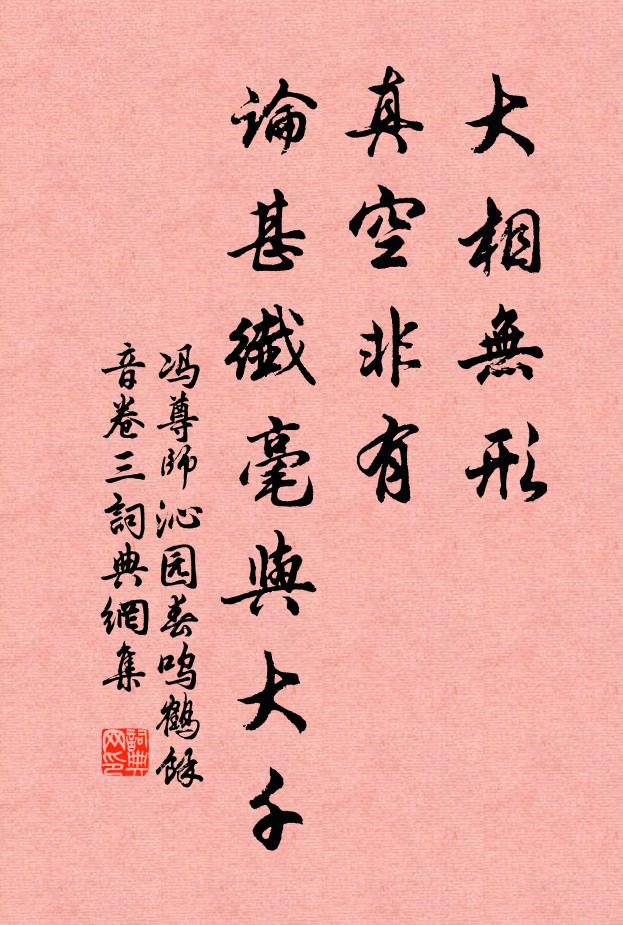 大相無形
真空非有
論甚纖毫與大千
冯尊師沁园春鸣鶴餘
音卷三詞典網集
詞典
网印